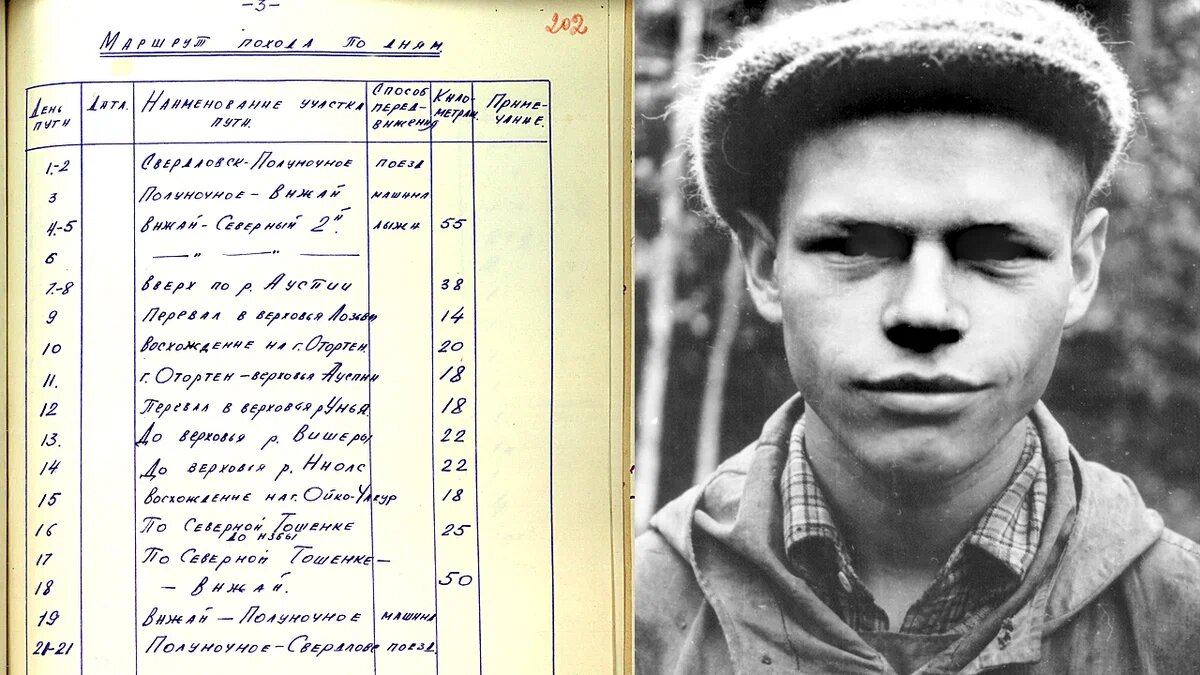 -3-
202
Маршрут похода по дням.
День пути Дата. Наименование участка пути. Способ передвижения Километраж. Примечание.
1-2 Свердловск-Полуночное поезд
3 Полуночное - Вижай машина
4-5 Вижай-Северный 2й. лыжи 55
6 —"— —"— ——
7-8 Вверх по р. Ауспии 38
9 Перевал в верховья Лозьвы 14
10 Восхождение на г. Отортен. 20
11. г. Отортен-верховья Ауспии 18
12 Перевал в верховья р. Унья 18
13. До верховья р. Вишеры 22
14 До верховья р. Ниолс 22
15 Восхождение на г. Ойко-Чакур 18
16 По Северной Тошемке до избы 25
17 По Северной Тошемке-
18 - Вижай. 50
19 Вижай - Полуночное машина
20-21 Полуночное-Свердловс поезд.